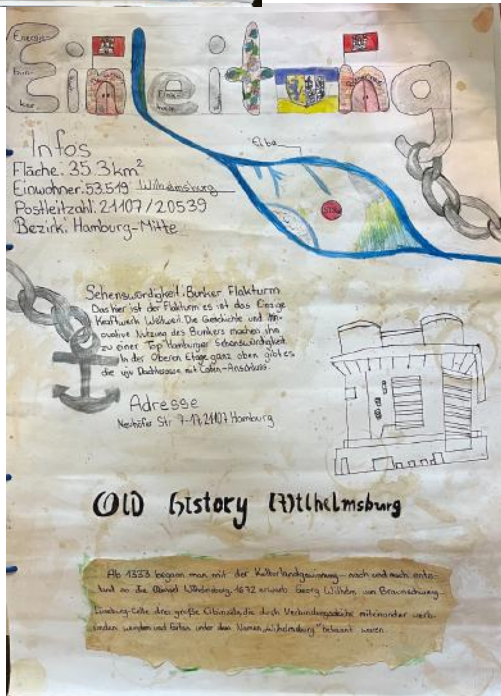 Einleitung
Energie-
bun-
ker
Elbe
Infos
Fläche: 35.3km²
Einwohner: 53.519 Wilhelmsburg
Postleitzahl: 21107/20539
Bezirk: Hamburg-Mitte
Sehenswürdigkeit: Bunker Flakturm
Das hier ist der Flakturm es ist das Einzige
Kraftwerk Weltweit Die Geschichte und inn-
ovative Nutzung des Bunkers machen ihn
zu einer Top Hamburger Sehenswürdigkeit
In der Oberen Etage ganz oben gibt es
die Dachterrasse mit Anschluss.
Adresse
Neuhöfer Str. 7-17, 21107 Hamburg
Old history Wilhelmsburg
Ab 1333 begann man mit der Kulturlandgewinnung - nach und nach ents-
tand so die Wilhelmsburg. 1672 erwarb Georg Wilhelm von Braunschweig-
Lüneburg-Celle drei große Elbinseln, die durch Verbindungsdeiche miteinander verb-
unden wurden und fortan unter dem Namen „Wilhelmsburg“ bekannt waren.